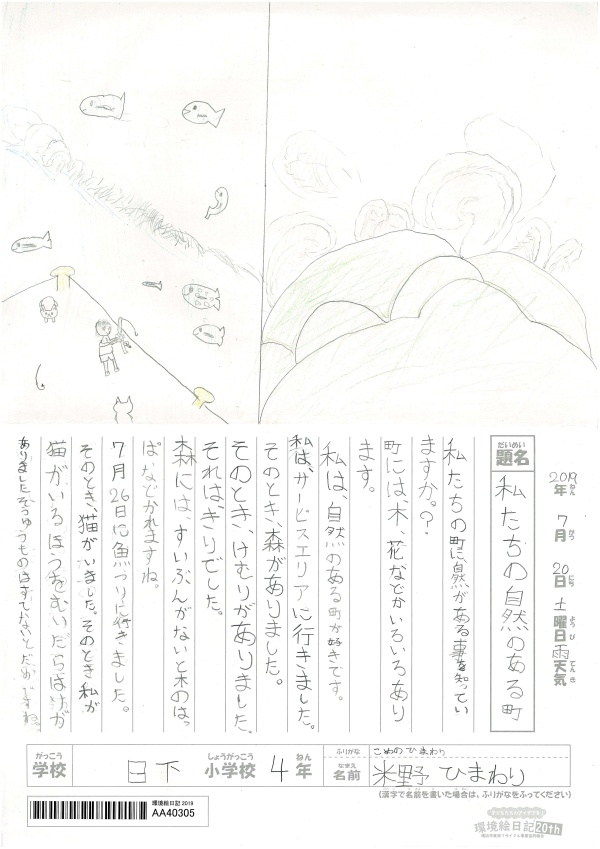 2019年ねん 7月がつ 20日にち 土曜日ようび 雨天気てんき
だいめい
題名
私たちの自然のある町
私たちの町に、自然がある事を知ってい
ますか。?
町には木、花などがいろいろあり
ます。
私は、自然のある町が好きです。
私は、サービスエリアに行きました。
そのとき、森がありました。
そのとき、けむりがありました、
それは、きりでした。
森には、すいぶんがないと木のはっ
ぱなどかれますね。
7月26日に魚つりに行きました。
そのとき、猫がいました。そのとき私が
猫がいるほうをむいたらはりが
ありました
がっこう
学校
日下
しょうがっこう
小学校
4
ねん
年
ふりがな
こめの ひまわり
なまえ
名前
米野 ひまわり
(漢字で名前を書いた場合は、ふりがなをふってください)
環境絵日記 2019
AA40305
環境絵日記20th